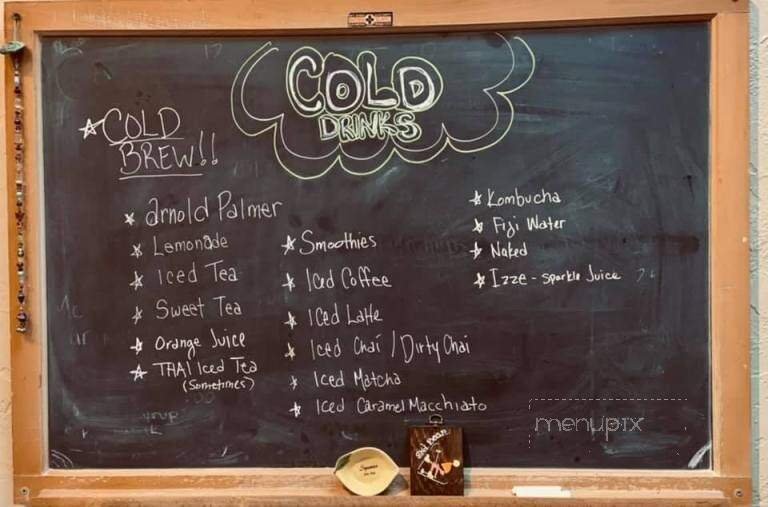 COLD
DRINKS
COLD
BREW!!
Arnold Palmer
Lemonade
Iced Tea
Sweet Tea
Orange Juice
THAI Iced Tea
(Sometimes)
Smoothies
Iced Coffee
Iced Latte
Iced Chai / Dirty Chai
Iced Matcha
Iced Caramel Macchiato
Kombucha
Fiji Water
Naked
Izze - sparkle Juice
menupix